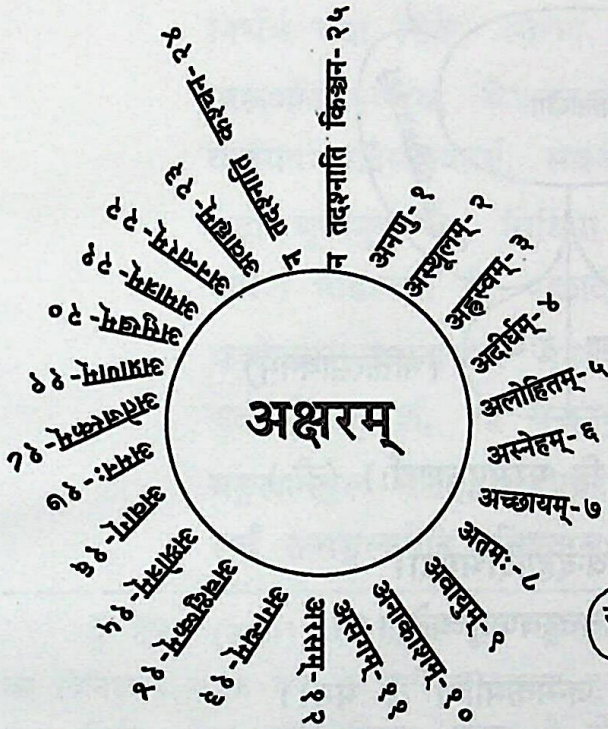 अक्षरम्
अनणु-१
अस्थूलम्-२
अह्रस्वम्-३
अदीर्घम्-४
अलोहितम्-५
अस्नेहम्-६
अच्छायम्-७
अतमः-८
अवायुम्-९
अनाकाशम्-१०
असगम्-११
अरसम्-१२
अगन्धम्-१३
अचक्षुष्कम्-१४
अश्रोत्रम्-१५
अवाग्-१६
अमनः-१७
अतेजस्कम्-१८
अप्राणम्-१९
अमुखम्-२०
अमात्रम्-२१
अनन्तरम्-२२
अबाह्यम्-२३
न तदश्नाति कश्चन-२४
न तदश्नाति किञ्चन-२५